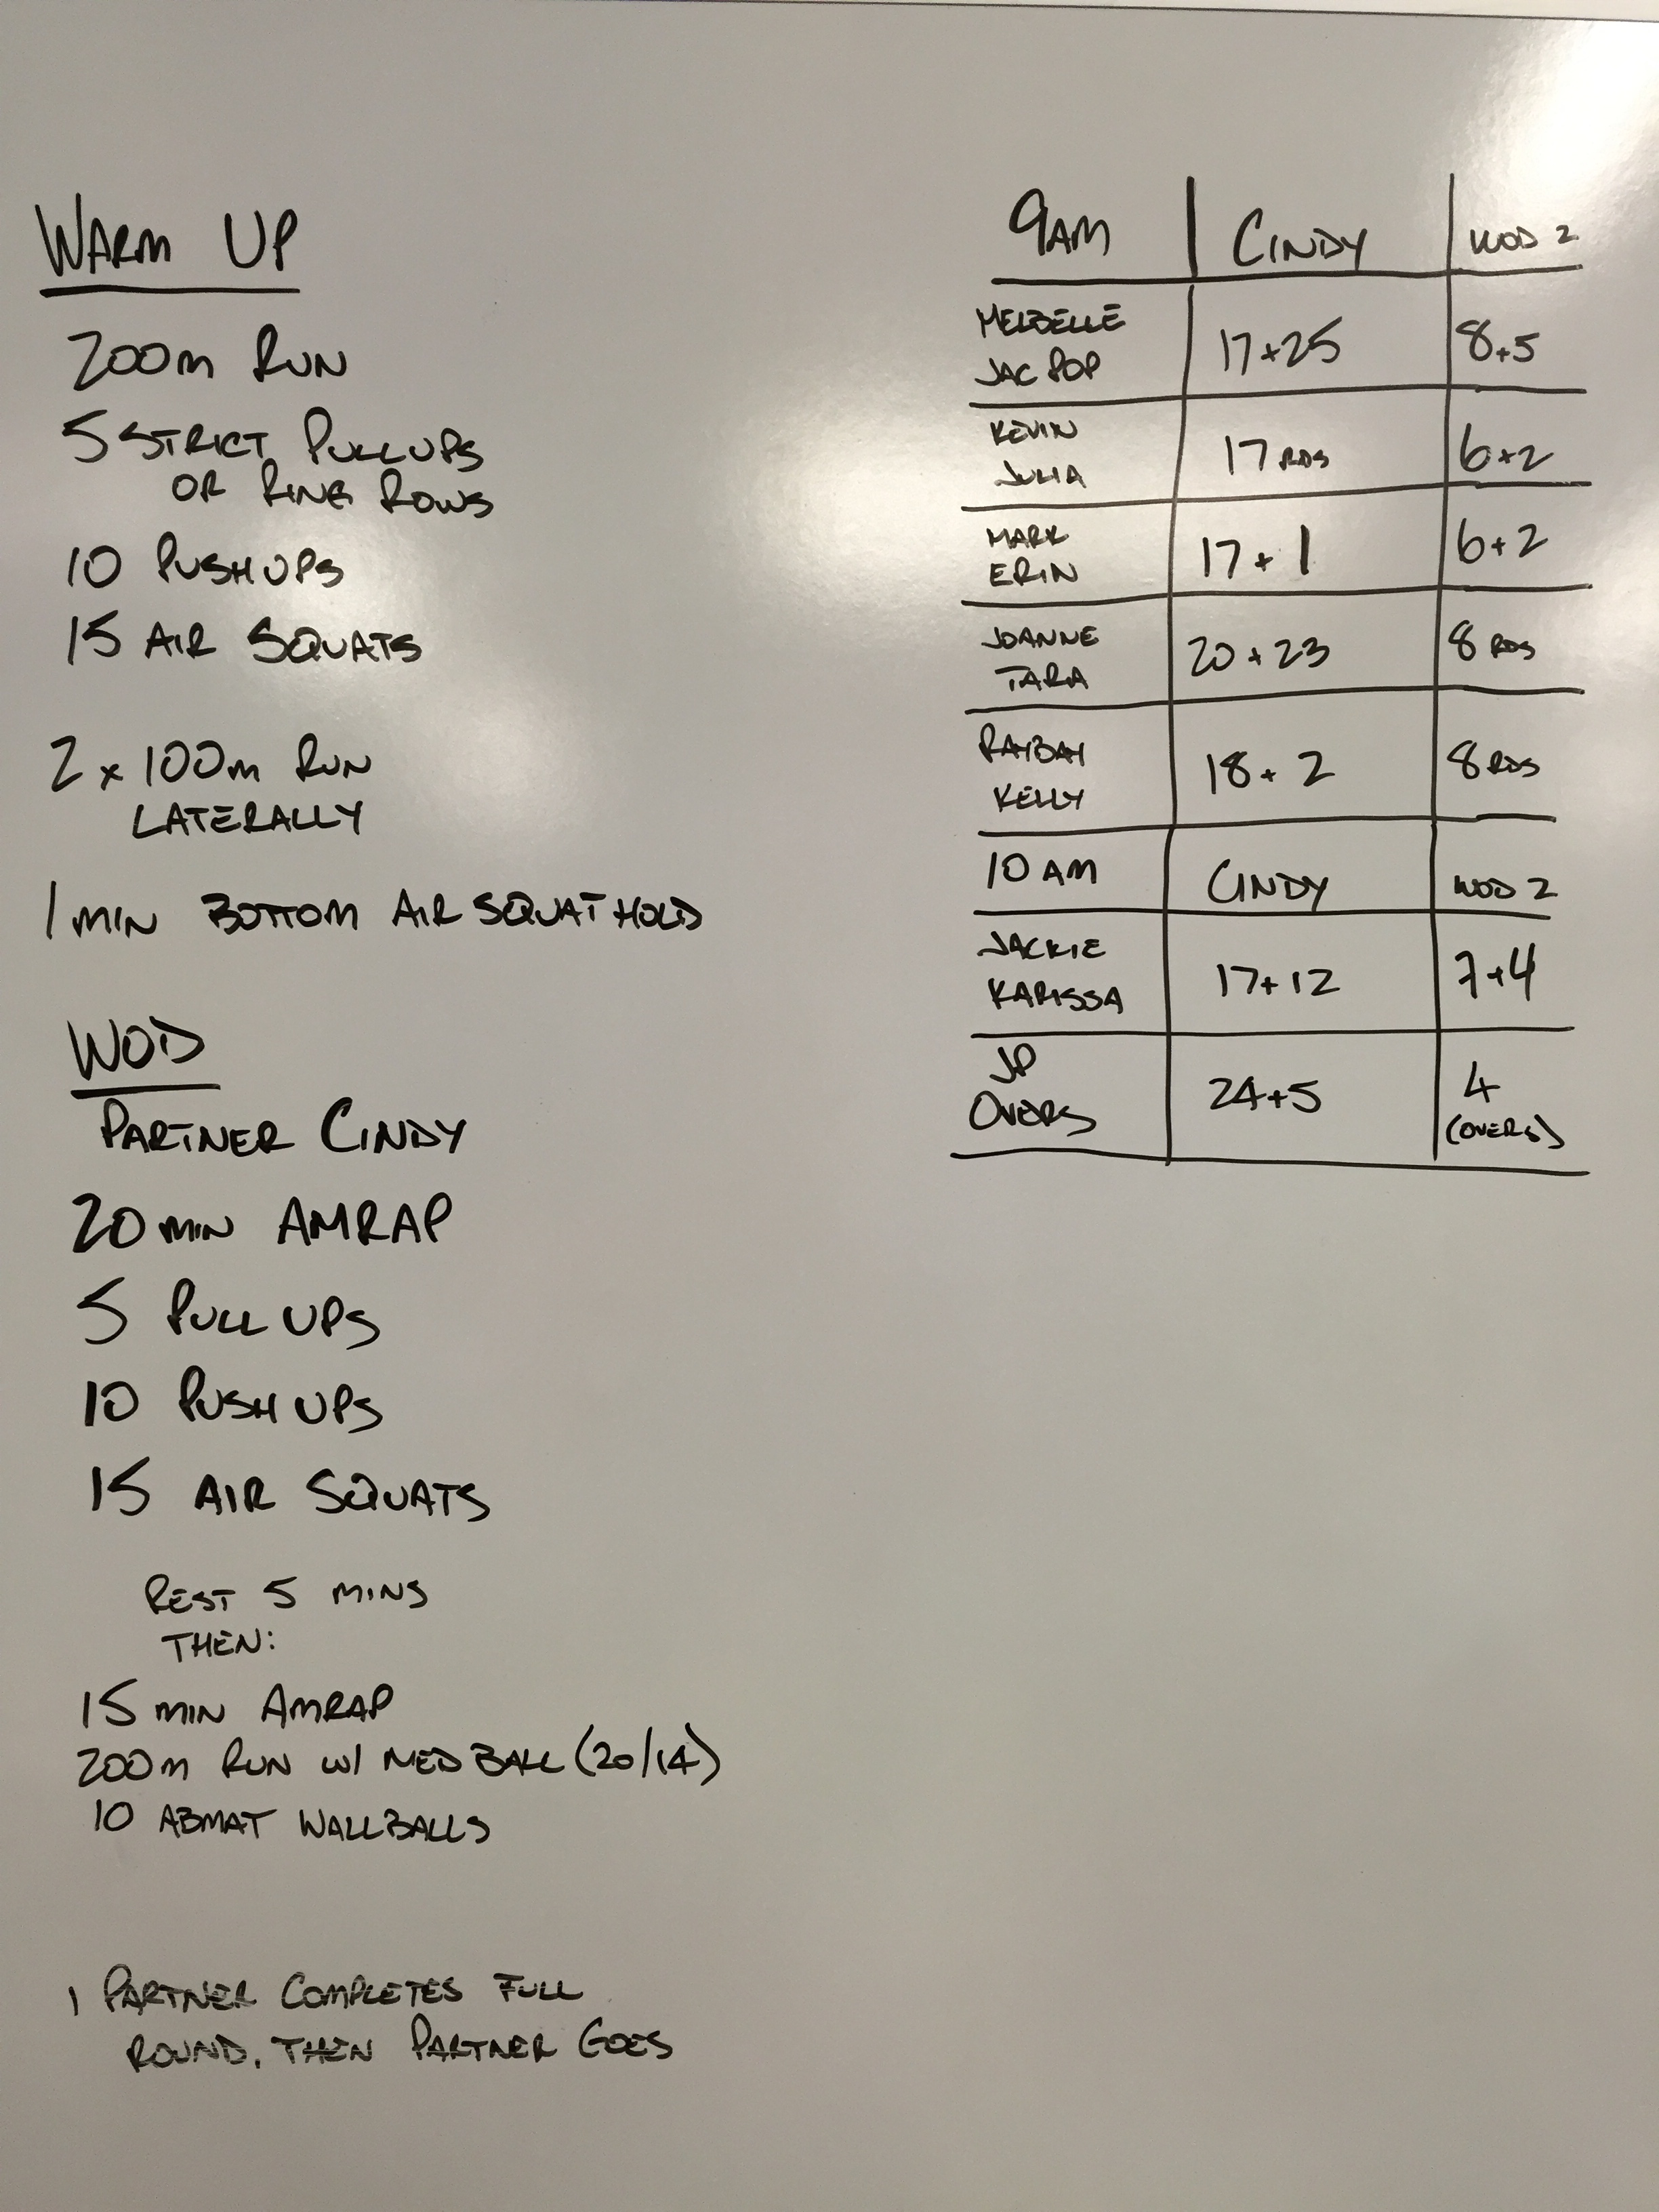 WARM UP
200m RUN
5 STRICT PULLUPS
OR RING ROWS
10 PUSHUPS
15 AIR SQUATS
2 x 100m RUN
LATERALLY
1 MIN BOTTOM AIR SQUAT HOLD
WOD
PARTNER CINDY
20 MIN AMRAP
5 PULL UPS
10 PUSH UPS
15 AIR SQUATS
REST 5 MINS
THEN:
15 MIN AMRAP
200m RUN W/ MED BALL (20/14)
10 ABMAT WALLBALLS
1 PARTNER COMPLETES FULL
ROUND, THEN PARTNER GOES
9AM CINDY WOD 2
MELBELLE
JAC POP 17+25 8+5
KEVIN
JULIA 17 RDS 6+2
MARK
ERIN 17+1 6+2
JOANNE
TARA 20+23 8 RDS
RAYBAY
KELLY 18+2 8 RDS
10 AM CINDY WOD 2
JACKIE
KARISSA 17+12 7+4
JP
OVERS 24+5 4
(OVERS)